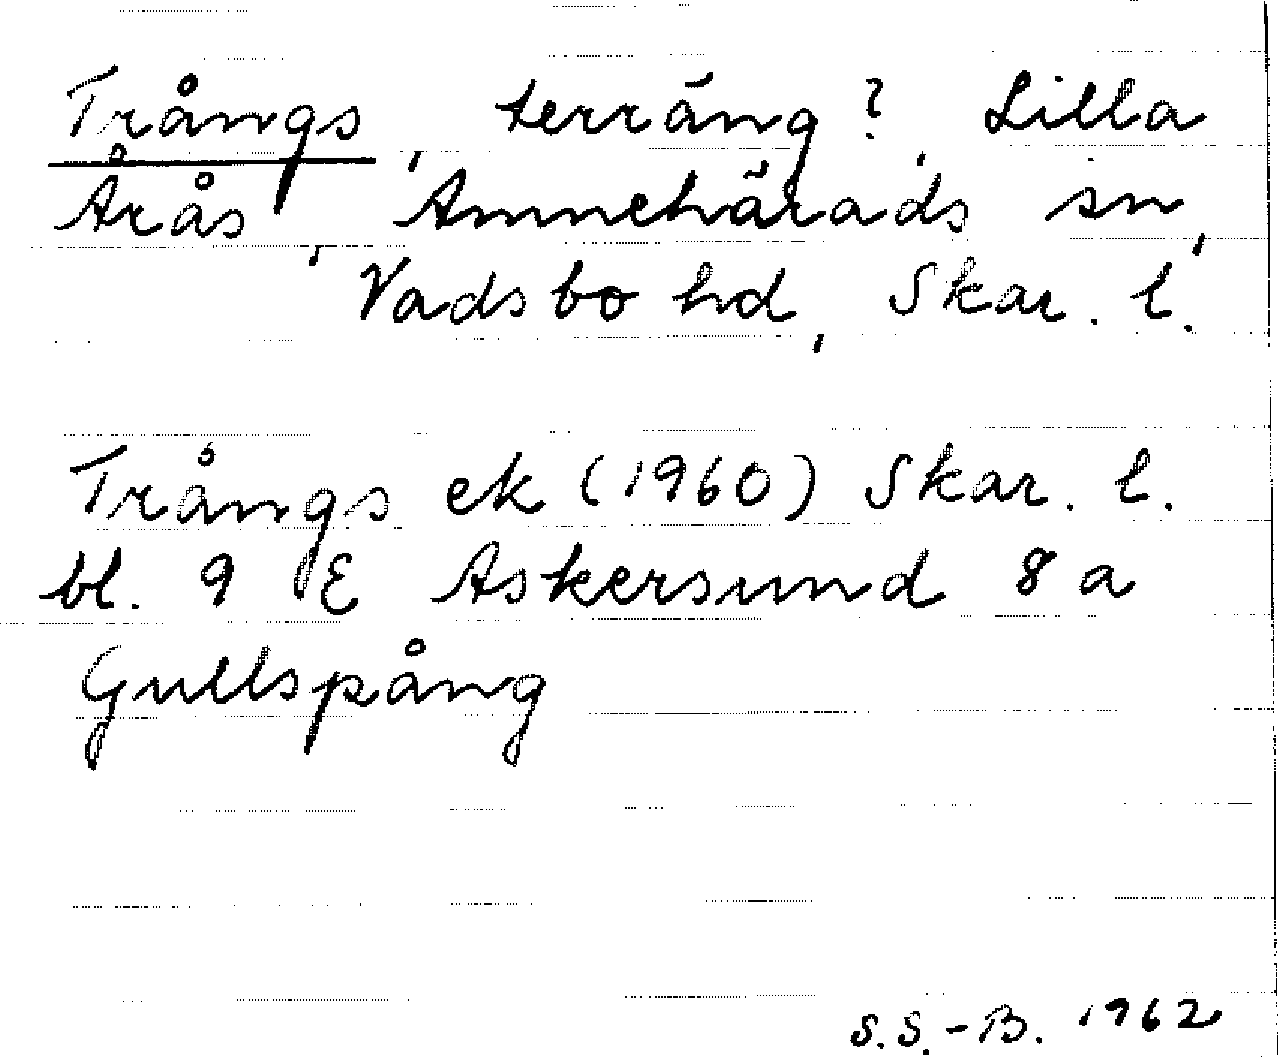 Trångs, terräng? Lilla
Årås, Amnehärads sn,
Vadsbo hd, Skar. l.
Trångs ek (1960) Skar. l.
bl. 9 E Askersund 8 a
Gullspång
S.S.-B. 1962